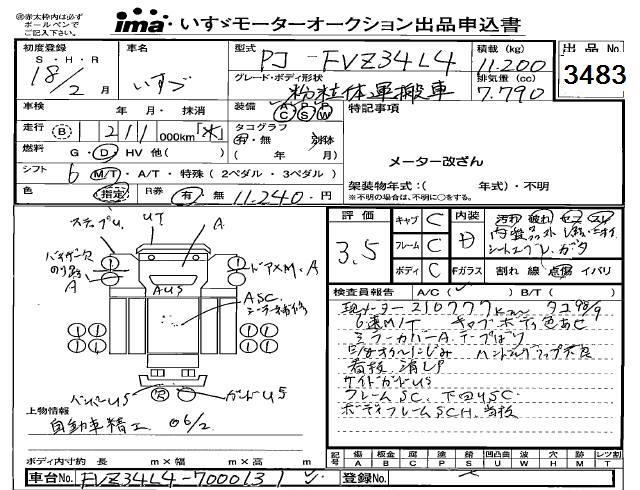 ㊟赤太枠内は必ず
ボールペンで
ご記入下さい。
ima いすゞモーターオークション出品申込書
初度登録
S・H・R
18/2 月
車名
いすゞ
型式
PJ-FVZ34L4
積載(kg)
11,200
出品No.
3483
グレード・ボディ形状
粉粒体運搬車
排気量(cc)
7,790
車検 年 月・抹消
装備 A/C P/S P/W
特記事項
走行 B 1 211 000km
タコグラフ
有・無 別体
( 年 月)
メーター改ざん
燃料 G・D HV 他( )
シフト 6 M/T・A/T・特殊(2ペダル・3ペダル)
架装物年式:( 年式)・不明
※不明の場合は、不明に○をする。
色 (指定) R券 有・無 11,240 円
ステップU
UT
A
バイザー欠
のり跡
A
ドアXM・A
AUS
ASC
R
バンパーUS
ガードUS
上物情報
自動車精工 06/2
評価
3.5
キャブ C
フレーム C
ボディ C
内装
D
汚れ 破れ
シート
Fガラス 割れ 線 点傷 イバリ
検査員報告 A/C( ) B/T( )
現メーター310777km タコ98/9
6速M/T キャブボディ色あせ
ミラーカバーA.テープばり
ハンドルグリップ不良
看板消しP
サイドガードUS
フレームSC.下回りSC.
ボディフレームSCH.当板
ボディ内寸約 長 m×幅 m×高 m
記号 傷A 板金B 腐C 塗P 錆S 凹凸曲U 波W 穴H 跡M レツ割T
車台No. FVZ34L4-7000137
登録No.